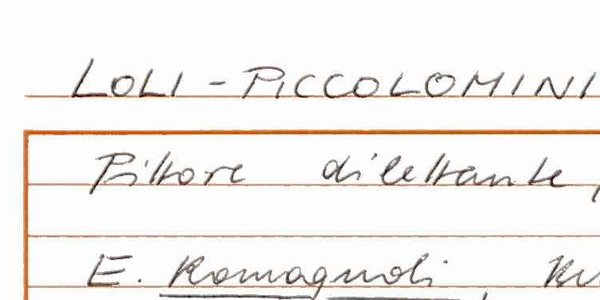 LOLI - PICCOLOMINI
Pittore dilettante,
E. Romagnoli,